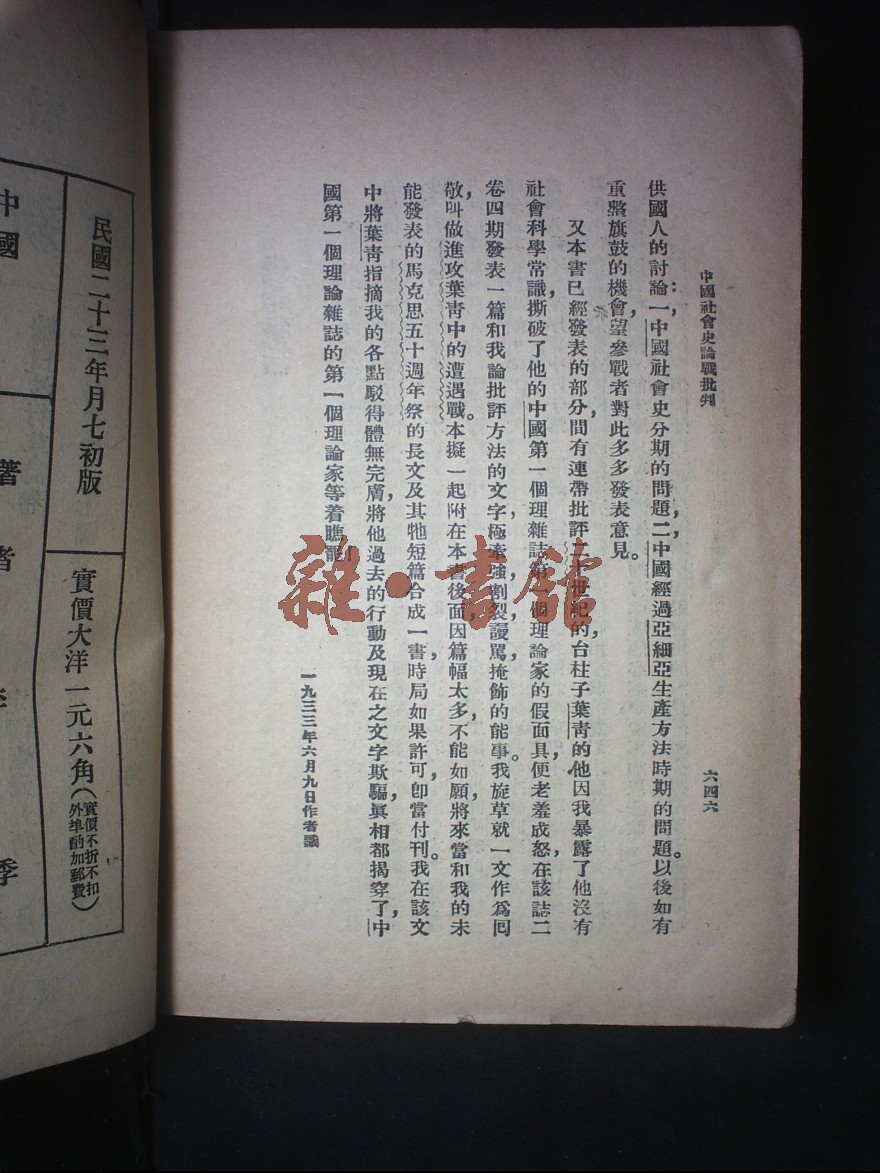 中國社會史論戰批判
六四六
供國人的討論:一,中國社會史分期的問題,二,中國經過亞細亞生產方法時期的問題。以後如有
重整旗鼓的機會,望參戰者對此多多發表意見。
又本書已經發表的部分,間有連帶批評二十世紀的台柱子葉靑的,他因我暴露了他沒有
社會科學常識,撕破了他的中國第一個理雜誌第一個理論家的假面具,便老羞成怒,在該誌二
卷四期發表一篇和我論批評方法的文字,極牽強,割裂,謾駡,掩飾的能事。我旋草就一文作爲囘
敬,叫做進攻葉靑中的遭遇戰。本擬一起附在本書後面,因篇幅太多,不能如願,將來當和我的未
能發表的馬克思五十週年祭的長文及其牠短篇合成一書,時局如果許可,卽當付刊。我在該文
中將葉靑指摘我的各點駁得體無完膚,將他過去的行動及現在之文字欺騙,眞相都揭穿了,中
國第一個理論雜誌的第一個理論家等着瞧罷!
一九三三年六月九日作者識
民國二十三年月七初版
實價大洋一元六角(實價不折不扣
外埠酌加郵費)
中國
著者
李季
雜·書館